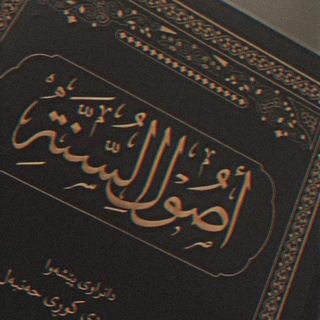 أُصُولُ السُّنَّةِ
دانراوی پێشەوا
کوڕی حەنبەل